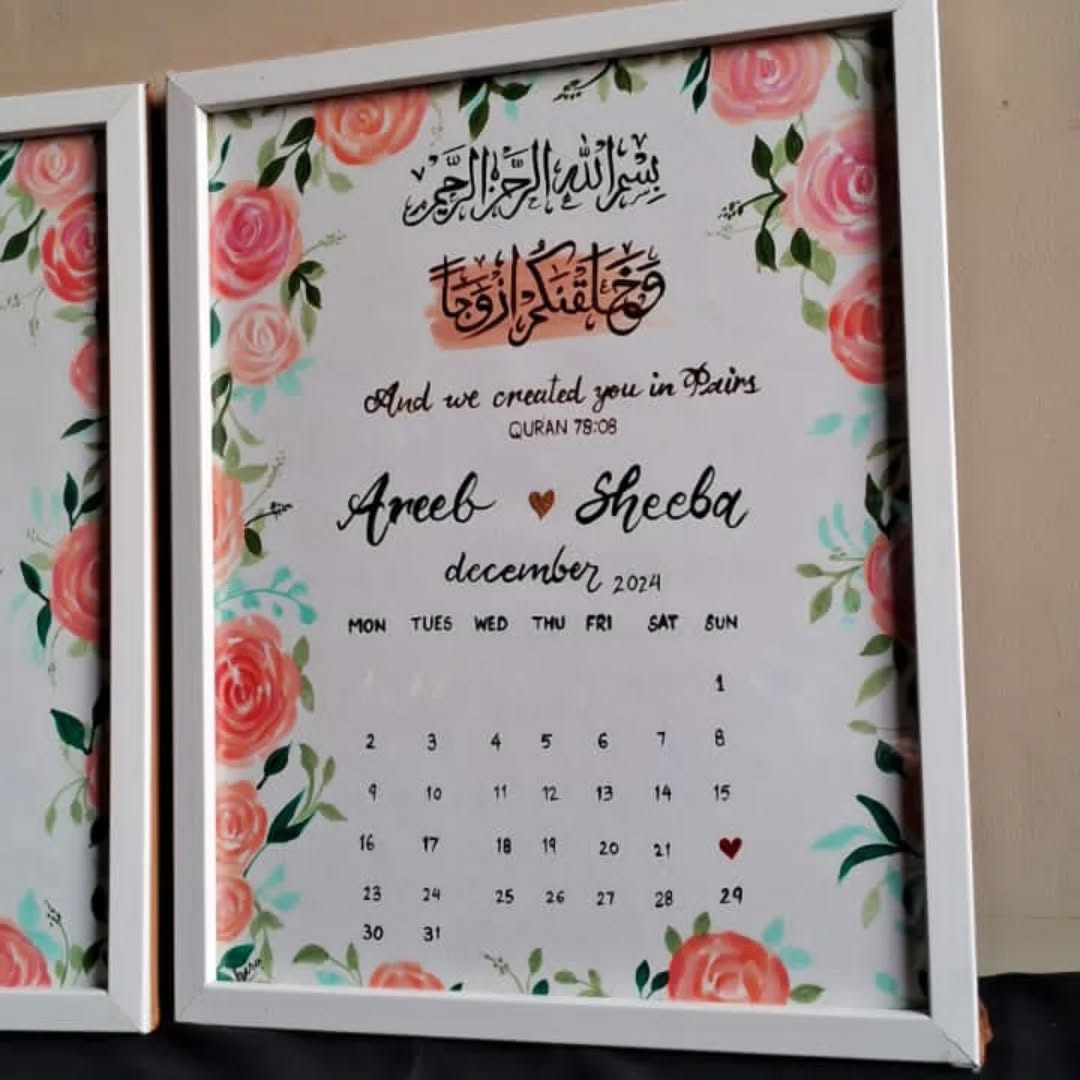 بِسْمِ اللهِ الرَّحْمٰنِ الرَّحِيْمِ
وَخَلَقْنٰكُمْ اَزْوَاجًا
And we created you in Pairs
QURAN 78:08
Areeb ♥ Sheeba
december 2024
MON TUES WED THU FRI SAT SUN
1
2 3 4 5 6 7 8
9 10 11 12 13 14 15
16 17 18 19 20 21 ♥
23 24 25 26 27 28 29
30 31